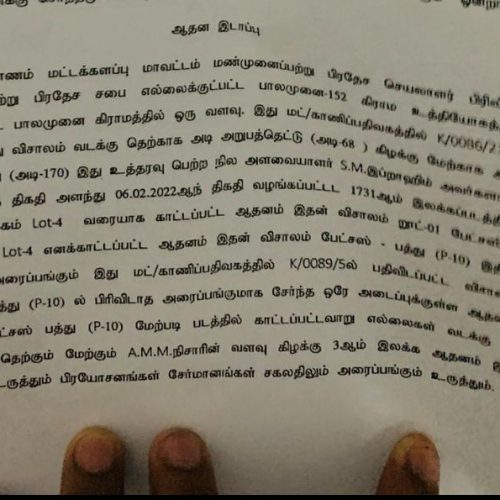 ஆதன இடாப்பு
ாணம் மட்டக்களப்பு மாவட்டம் மண்முனைப்பற்று பிரதேச செயலாளர் பிரிவி
ற்று பிரதேச சபை எல்லைக்குட்பட்ட பாலமுனை-152 கிராம உத்தியோகத்த
பாலமுனை கிராமத்தில் ஒரு வளவு. இது மட்/காணிப்பதிவகத்தில் K/0086/2
விசாலம் வடக்கு தெற்காக அடி அறுபத்தெட்டு (அடி-68 ) கிழக்கு மேற்காக அ
(அடி-170) இது உத்தரவு பெற்ற நில அளவையாளர் S.M.இப்றாஹிம் அவர்களா
திகதி அளந்து 06.02.2022ஆந் திகதி வழங்கப்பட்ட 1731ஆம் இலக்கப்படத்தி
கம் Lot-4 வரையாக காட்டப்பட்ட ஆதனம் இதன் விசாலம் றூட்-01 பேட்சஸ்
Lot-4 எனக்காட்டப்பட்ட ஆதனம் இதன் விசாலம் பேட்சஸ் - பத்து (P-10) இதி
அரைப்பங்கும் இது மட்/காணிப்பதிவகத்தில் K/0089/5ல் பதிவிடப்பட்ட விசா
த்து (P-10) ல் பிரிவிடாத அரைப்பங்குமாக சேர்ந்த ஒரே அடைப்புக்குள்ள ஆத
ட்சஸ் பத்து (P-10) மேற்படி படத்தில் காட்டப்பட்டவாறு எல்லைகள் வடக்கு
தெற்கும் மேற்கும் A.M.M.நிசாரின் வளவு கிழக்கு 3ஆம் இலக்க ஆதனம் இ
உருத்தும் பிரயோசனங்கள் சேர்மானங்கள் சகலதிலும் அரைப்பங்கும் உருத்தும்.